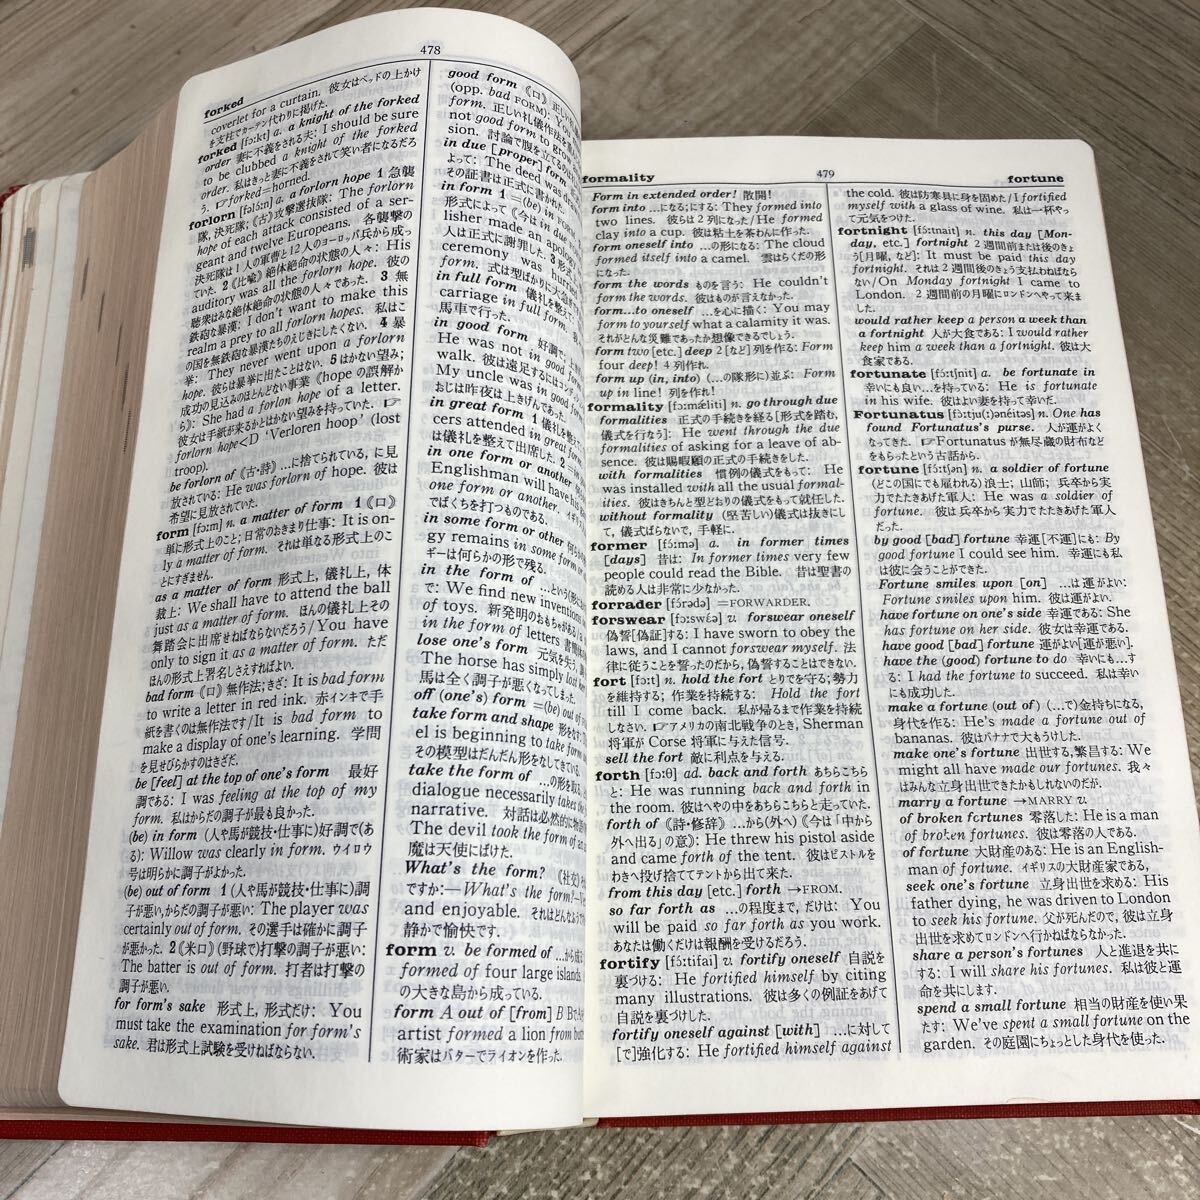 478
forked
coverlet for a curtain. 彼女はベッドの上かけ
を支柱でカーテン代わりに掲げた.
forked [fɔːkt] a. a knight of the forked
order 妻に不義をされる夫: I should be sure
to be clubbed a knight of the forked
order. 私はきっと妻に不義をされて笑い者になるだろ
う. ☞forked=horned.
forlorn a. a forlorn hope 1 急襲
隊, 決死隊;《古》攻撃選抜隊: The forlorn
hope of each attack consisted of a ser-
geant and twelve Europeans. 各襲撃の
決死隊は1人の軍曹と12人のヨーロッパ兵から成っ
ていた. 2《比喩》絶体絶命の状態の人々: His
auditory was all the forlorn hope. 彼の
聴衆はみな絶体絶命の状態の人々であった. 3 無
鉄砲な暴漢: I don't want to make this
realm a prey to all forlorn hopes. 私はこ
の国を無鉄砲な暴漢たちのえじきにしたくない. 4 暴
挙: They never went upon a forlorn
hope. 彼らは暴挙に出たことはない. 5 はかない望み;
成功の見込みのほとんどない事業《hope の誤解か
ら》: She had a forlon hope of a letter.
彼女は手紙が来るかとはかない望みを持っていた. ☞
forlorn hope<D 'Verloren hoop' (lost
troop).
be forlorn of《古・詩》…に捨てられている, に見
放されている: He was forlorn of hope. 彼は
希望に見放されていた.
form [fɔːm] n. a matter of form 1《口》
単に形式上のこと; 日常のおきまり仕事: It is on-
ly a matter of form. それは単なる形式上のこ
とにすぎません.
as a matter of form 形式上, 儀礼上, 体
裁上: We shall have to attend the ball
just as a matter of form. ほんの儀礼上その
舞踏会に出席せねばならないだろう/You have
only to sign it as a matter of form. ただ
ほんの形式上署名しさえすればよい.
bad form《口》無作法; きざ: It is bad form
to write a letter in red ink. 赤インキで手
紙を書くのは無作法です/It is bad form to
make a display of one's learning. 学問
を見せびらかすのはきざだ.
be [feel] at the top of one's form 最好
調である: I was feeling at the top of my
form. 私はからだの調子が最も良かった.
(be) in form (人や馬が競技・仕事に)好調で(あ
る): Willow was clearly in form. ウイロウ
号は明らかに調子がよかった.
(be) out of form 1 (人や馬が競技・仕事に)調
子が悪い, からだの調子が悪い: The player was
certainly out of form. その選手は確かに調子
が悪かった. 2《米口》(野球で)打撃の調子が悪い:
The batter is out of form. 打者は打撃の
調子が悪い.
for form's sake 形式上, 形式だけ: You
must take the examination for form's
sake. 君は形式上試験を受けねばならない.
good form《口》正しい
(opp. bad FORM)
form. 正しい礼儀作法を
not good form to
sion. 討論で腹を立てる
in due [proper] form
よって: The deed was
その証書は正式に書かれた.
in form 1=(be) in
形式によって《今は in due
lisher made an apology
人は正式に謝罪した. 3 形式
ceremony was
form. 式は型ばかりに大急ぎ
in full form 儀礼を整えて
carriage in full form.
馬車で行った.
in good form 好調で;
He was not in good form
walk. 彼は遠足するにはコン
My uncle was in good
おじは昨夜は上きげんであった.
in great form 1 儀礼を整えて
cers attended in great form
は儀礼を整えて出席した. 2=
in one form or another
Englishman will have
one form or another. イギリス
でばくちを打つものである.
in some form or other 何らか
gy remains in some form or
ギーは何らかの形で残る.
in the form of …という(形に
で: We find new inventions
of toys. 新発明のおもちゃがある
in the form of letters 書簡体
lose one's form 元気を失う,
The horse has simply lost
馬は全く調子が悪くなってしまった.
off (one's) form =(be) out of
take form and shape 形をな
el is beginning to take form
その模型はだんだん形をなしてきている.
take the form of …の形を取る,
dialogue necessarily takes the
narrative. 対話は必然的に物語
The devil took the form of an
魔は天使にばけた.
What's the form?《社交》
ですか:—What's the form?—
and enjoyable. それはどんなふう
静かで愉快です.
form v. be formed of …から成
formed of four large islands
の大きな島から成っている.
form A out of [from] B
artist formed a lion from
術家はバターでライオンを作った.
formality
479
fortune
Form in extended order! 散開!
form into …になる;にする: They formed into
two lines. 彼らは2列になった/He formed
clay into a cup. 彼は粘土を茶わんに作った.
form oneself into …の形になる: The cloud
formed itself into a camel. 雲はらくだの形
になった.
form the words ものを言う: He couldn't
form the words. 彼はものが言えなかった.
form…to oneself …を心に描く: You may
form to yourself what a calamity it was.
それがどんな災難であったか想像できるでしょう.
form two [etc.] deep 2 [など] 列を作る: Form
four deep! 4 列作れ.
form up (in, into) (…の隊形に)並ぶ: Form
up in line! 列を作れ!
formality [fɔːmǽliti] n. go through due
formalities 正式の手続きを経る[形式を踏む,
儀式を行なう]: He went through the due
formalities of asking for a leave of ab-
sence. 彼は賜暇願の正式の手続きをした.
with formalities 慣例の儀式をもって: He
was installed with all the usual formal-
ities. 彼はきちんと型どおりの儀式をもって就任した.
without formality (堅苦しい)儀式は抜きにし
て, 儀式ばらないで, 手軽に.
former [fɔ́ːmə] a. in former times
[days] 昔は: In former times very few
people could read the Bible. 昔は聖書の
読める人は非常に少なかった.
forrader [fɔ́rədə] =FORWARDER.
forswear [fɔːswɛ́ə] v. forswear oneself
偽誓[偽証]する: I have sworn to obey the
laws, and I cannot forswear myself. 法
律に従うことを誓ったのだから, 偽誓することはできない.
fort [fɔːt] n. hold the fort とりでを守る; 勢力
を維持する; 作業を持続する: Hold the fort
till I come back. 私が帰るまで作業を持続
しなさい. ☞アメリカの南北戦争のとき, Sherman
将軍が Corse 将軍に与えた信号.
sell the fort 敵に利点を与える.
forth [fɔːθ] ad. back and forth あちらこちら
と: He was running back and forth in
the room. 彼はへやの中をあちらこちらと走っていた.
forth of《詩・修辞》…から(外へ)《今は「中から
外へ出る」の意》: He threw his pistol aside
and came forth of the tent. 彼はピストルを
わきへ投げ捨ててテントから出て来た.
from this day [etc.] forth →FROM.
so far forth as …の程度まで, だけは: You
will be paid so far forth as you work.
あなたは働くだけは報酬を受けるだろう.
fortify [fɔ́ːtifai] v. fortify oneself 自説を
裏づける: He fortified himself by citing
many illustrations. 彼は多くの例証をあげて
自説を裏づけした.
fortify oneself against [with] …に対して
[で]強化する: He fortified himself against
the cold. 彼は防寒具に身を固めた/I fortified
myself with a glass of wine. 私は一杯やっ
て元気をつけた.
fortnight [fɔ́ːtnait] n. this day [Mon-
day, etc.] fortnight 2 週間前または後のきょ
う[月曜, など]: It must be paid this day
fortnight. それは2週間後のきょう支払わねばなら
ない/On Monday fortnight I came to
London. 2 週間前の月曜にロンドンへやって来ま
した.
would rather keep a person a week than
a fortnight 人が大食である: I would rather
keep him a week than a fortnight. 彼は大
食家である.
fortunate [fɔ́ːtʃnit] a. be fortunate in
幸いにも良い…を持っている: He is fortunate
in his wife. 彼はよい妻を持って幸いだ.
Fortunatus [fɔːtju(ː)énitəs] n. One has
found Fortunatus's purse. 人が運がよく
なってきた. ☞Fortunatus が無尽蔵の財布など
をもらったという古話から.
fortune [fɔ́ːtʃən] n. a soldier of fortune
(どこの国にでも雇われる)浪士; 山師; 兵卒から実
力でたたきあげた軍人: He was a soldier of
fortune. 彼は兵卒から実力でたたきあげた軍人
だった.
by good [bad] fortune 幸運[不運]にも: By
good fortune I could see him. 幸運にも私
は彼に会うことができた.
Fortune smiles upon [on] …は運がよい:
Fortune smiles upon him. 彼は運がよい.
have fortune on one's side 幸運である: She
has fortune on her side. 彼女は幸運である.
have good [bad] fortune 運がよい[運が悪い].
have the (good) fortune to do 幸いにも…す
る: I had the fortune to succeed. 私は幸い
にも成功した.
make a fortune (out of) (…で)金持ちになる,
身代を作る: He's made a fortune out of
bananas. 彼はバナナで大もうけした.
make one's fortune 出世する, 繁昌する: We
might all have made our fortunes. 我々
はみんな立身出世できたかもしれないのだが.
marry a fortune →MARRY v.
of broken fortunes 零落した: He is a man
of broken fortunes. 彼は零落の人である.
of fortune 大財産のある: He is an English-
man of fortune. イギリスの大財産家である.
seek one's fortune 立身出世を求める: His
father dying, he was driven to London
to seek his fortune. 父が死んだので, 彼は立身
出世を求めてロンドンへ行かねばならなかった.
share a person's fortunes 人と進退を共に
する: I will share his fortunes. 私は彼と運
命を共にします.
spend a small fortune 相当の財産を使い果
たす: We've spent a small fortune on the
garden. その庭園にちょっとした身代を使った.